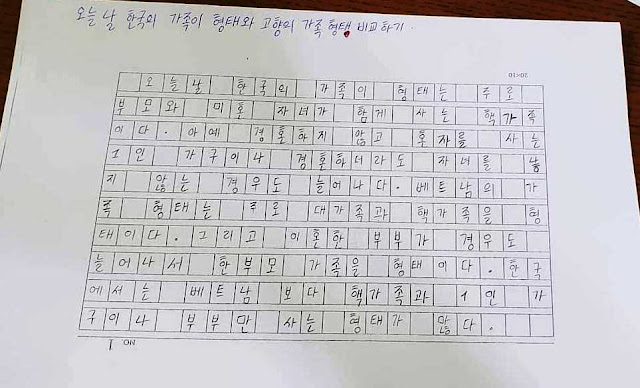 오늘 날 한국의 가족이 형태와 고향의 가족 형태 비교하기
20×10
오늘날 한국의 가족이 형태는 주로
부모와 미혼 자녀가 함게 사는 핵가족
이다. 아예 경혼하지 않고 혼자를 사는
1인 가구이나 경혼하더라도 자녀를 낳
지 않는 경우도 늘어나다. 베트남의 가
족 형태는 주로 대가족과 핵가족을 형
태이다. 그리고 이혼한 부부가 경우도
늘어나서 한부모 가족을 형태이다. 한국
에서는 베트남 보다 핵가족과 1인 가
구이나 부부만 사는 형태가 많다.
NO 1